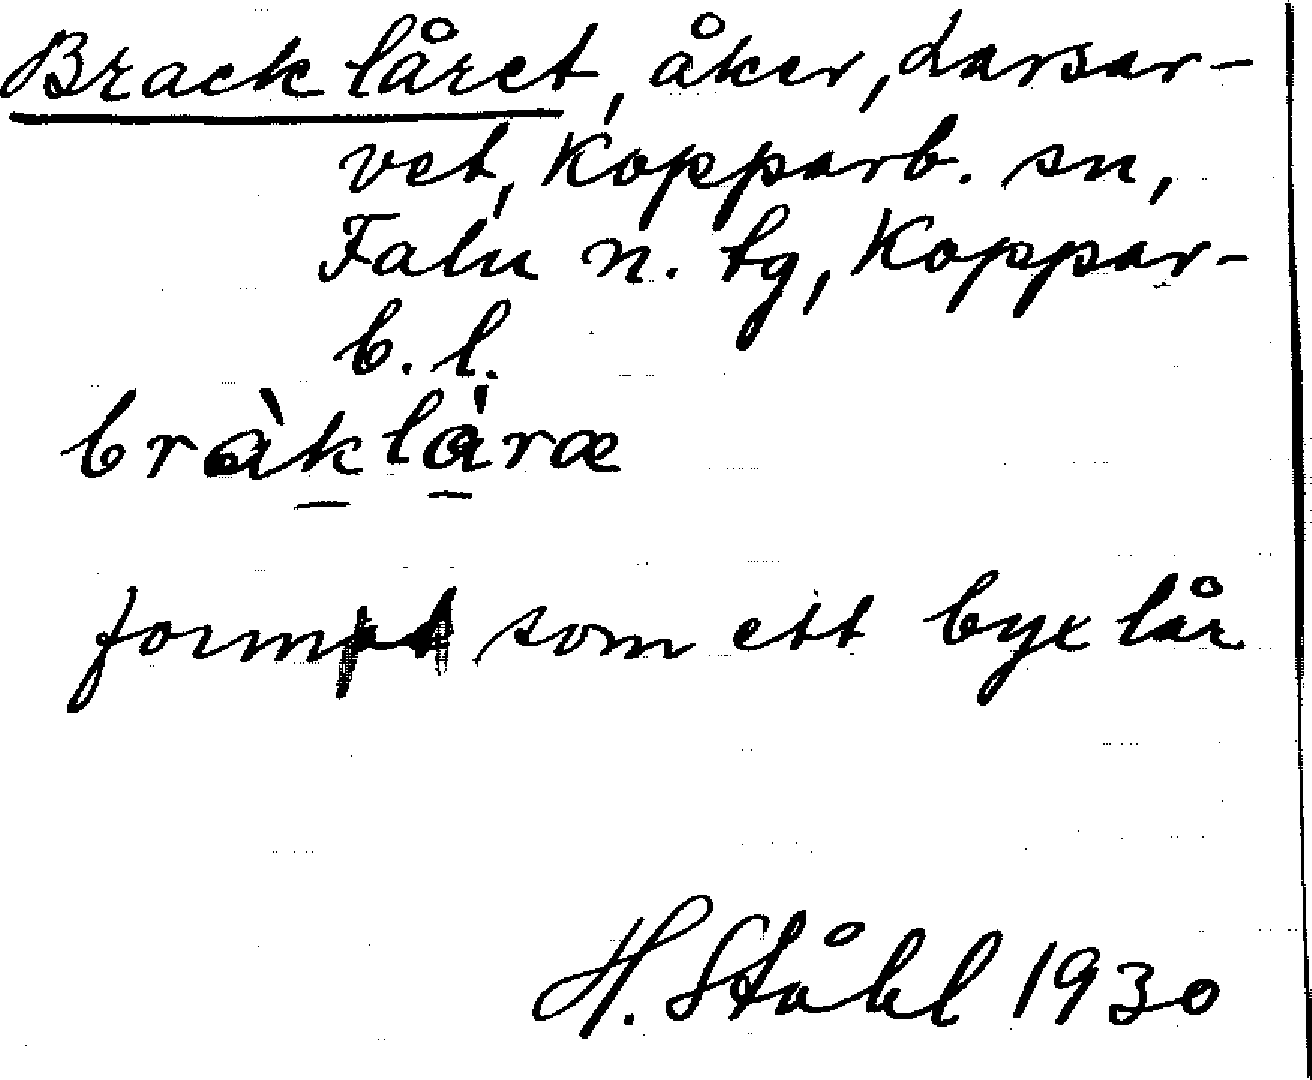 Bracklåret, åker, Larsar-
vet, Kopparb. sn,
Falu n. tg, Koppar-
b. l.
bràklàræ
format som ett byxlår
H. Ståhl 1930